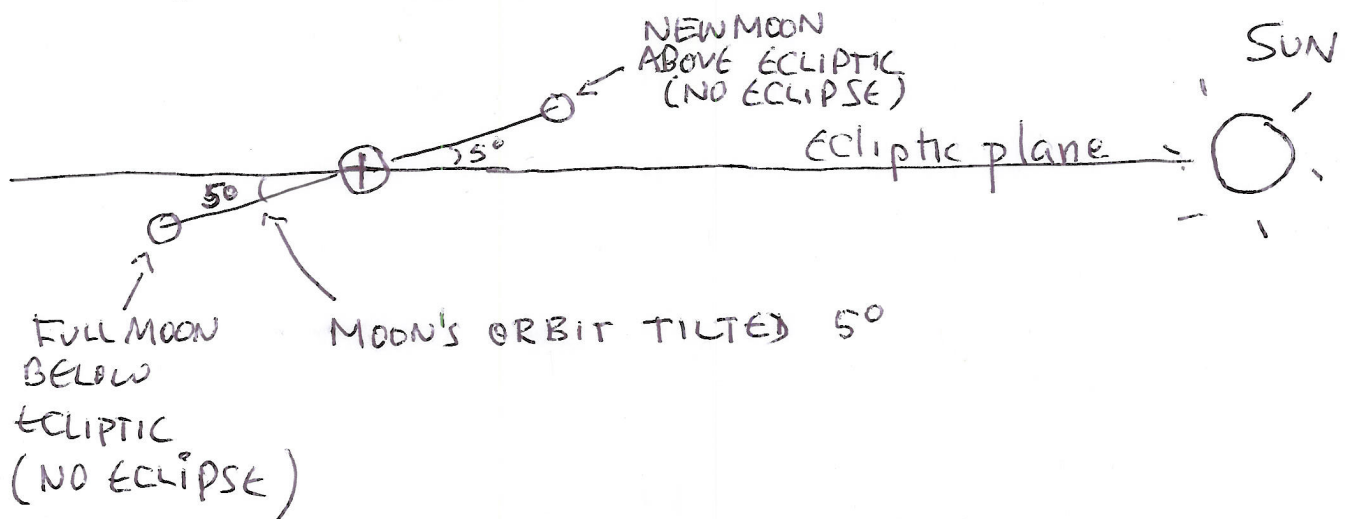 NEW MOON
ABOVE ECLIPTIC
(NO ECLIPSE)
SUN
Ecliptic plane
5°
5°
FULL MOON
BELOW
ECLIPTIC
(NO ECLIPSE)
MOON'S ORBIT TILTED 5°